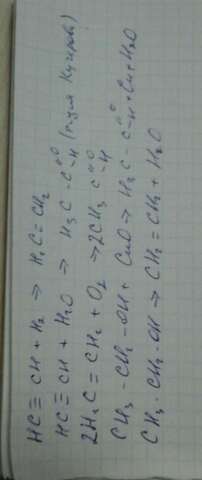 HC≡CH + H₂ → H₂C=CH₂
HC≡CH + H₂O → H₃C-C=O-H (р-ция Кучерова)
2H₂C=CH₂ + O₂ → 2CH₃C=O-H
CH₃-CH₂-OH + CuO → H₃C-C=O-H + Cu + H₂O
CH₃-CH₂-OH → CH₂=CH₂ + H₂O